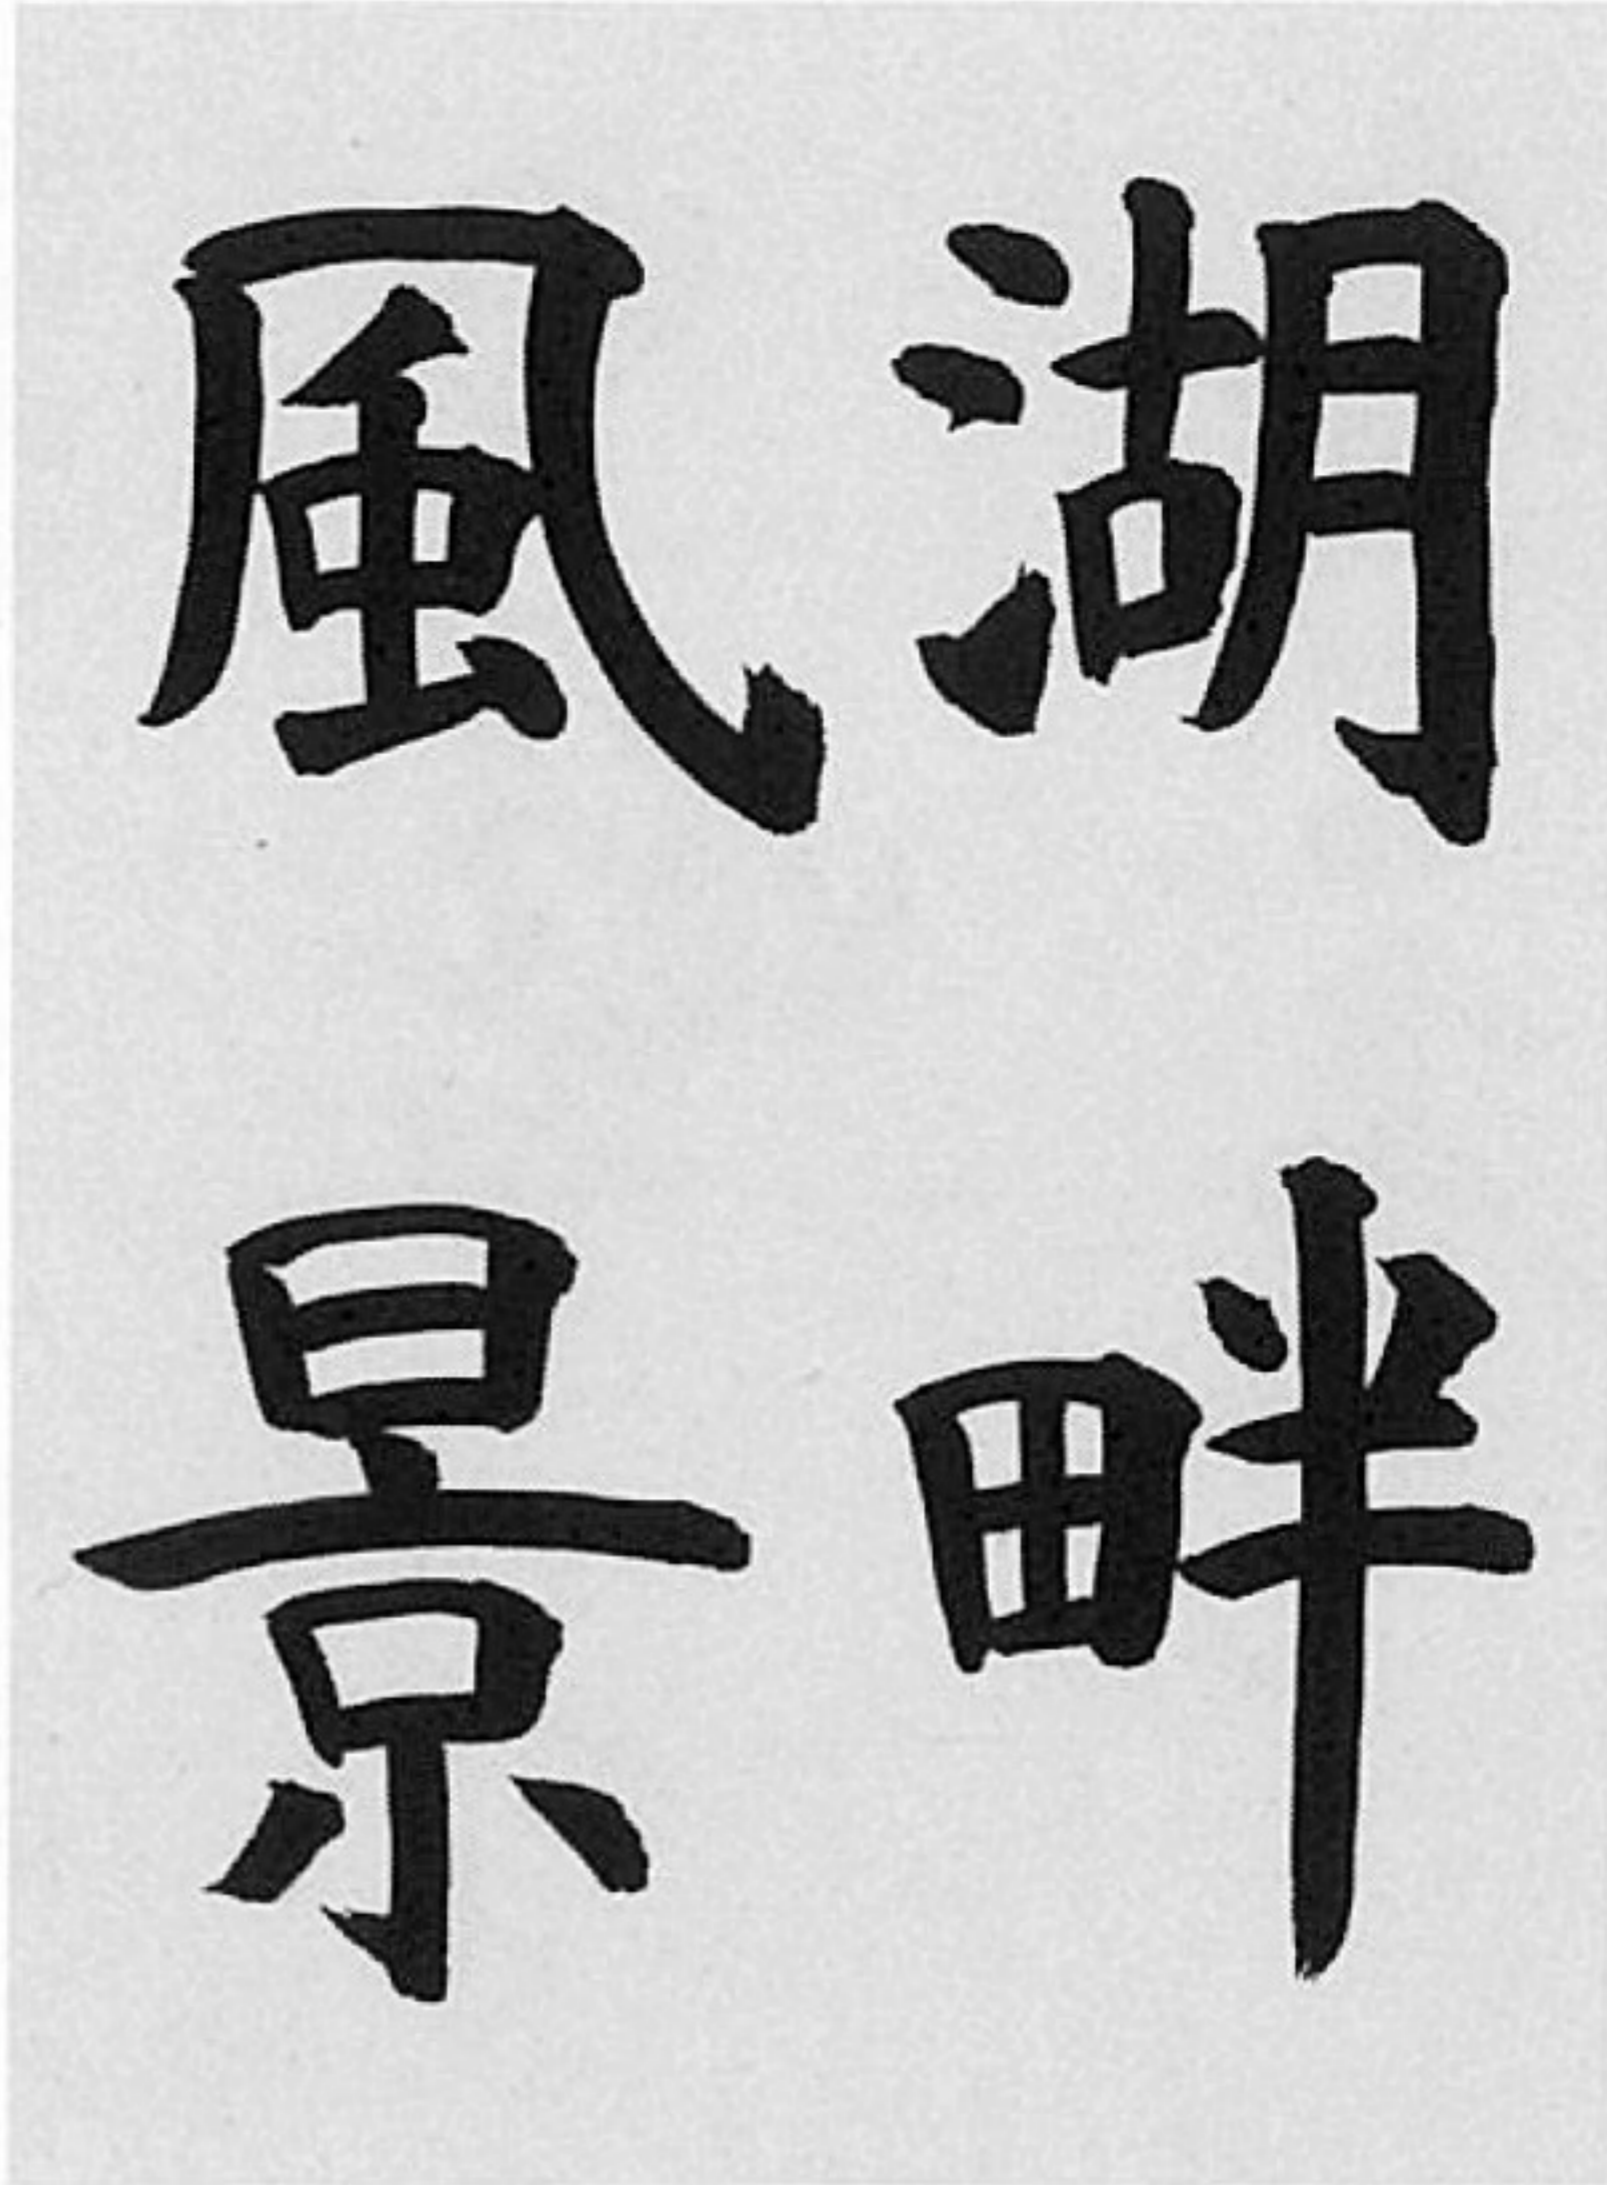 湖畔
風景